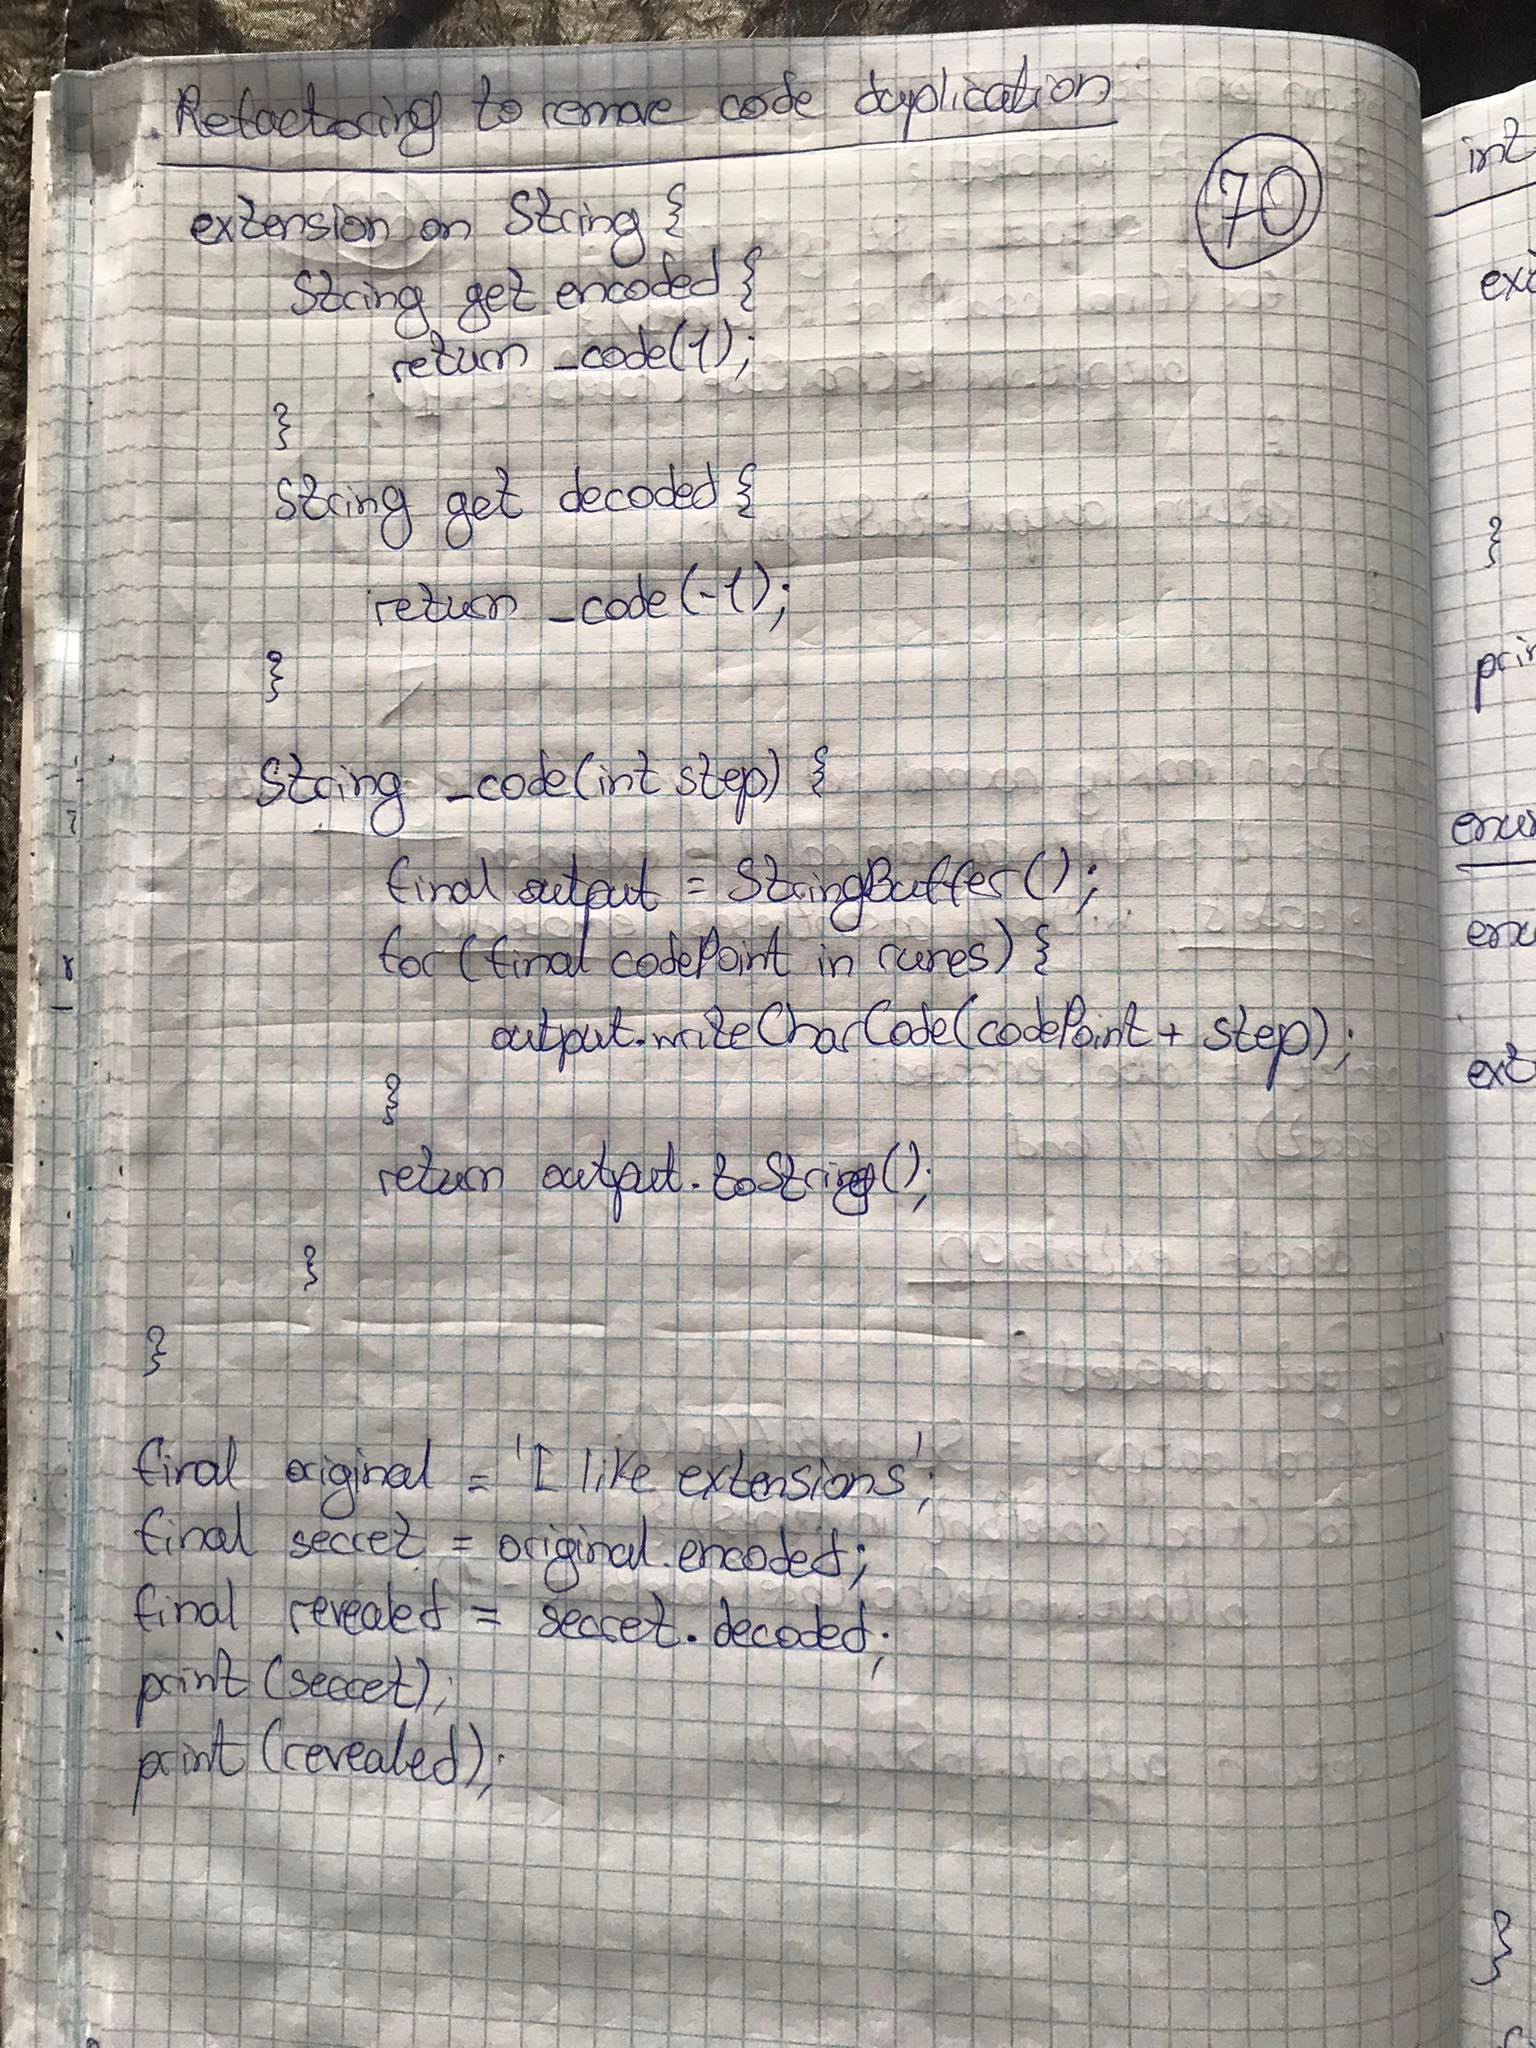 Refactoring to remove code duplication
70
extension on String {
String get encoded {
return _code(1);
}
String get decoded {
return _code(-1);
}
String _code(int step) {
final output = StringBuffer();
for (final codePoint in runes) {
output.writeCharCode(codePoint + step);
}
return output.toString();
}
}
final original = 'I like extensions';
final secret = original.encoded;
final revealed = secret.decoded;
print (secret);
print (revealed);
int
}